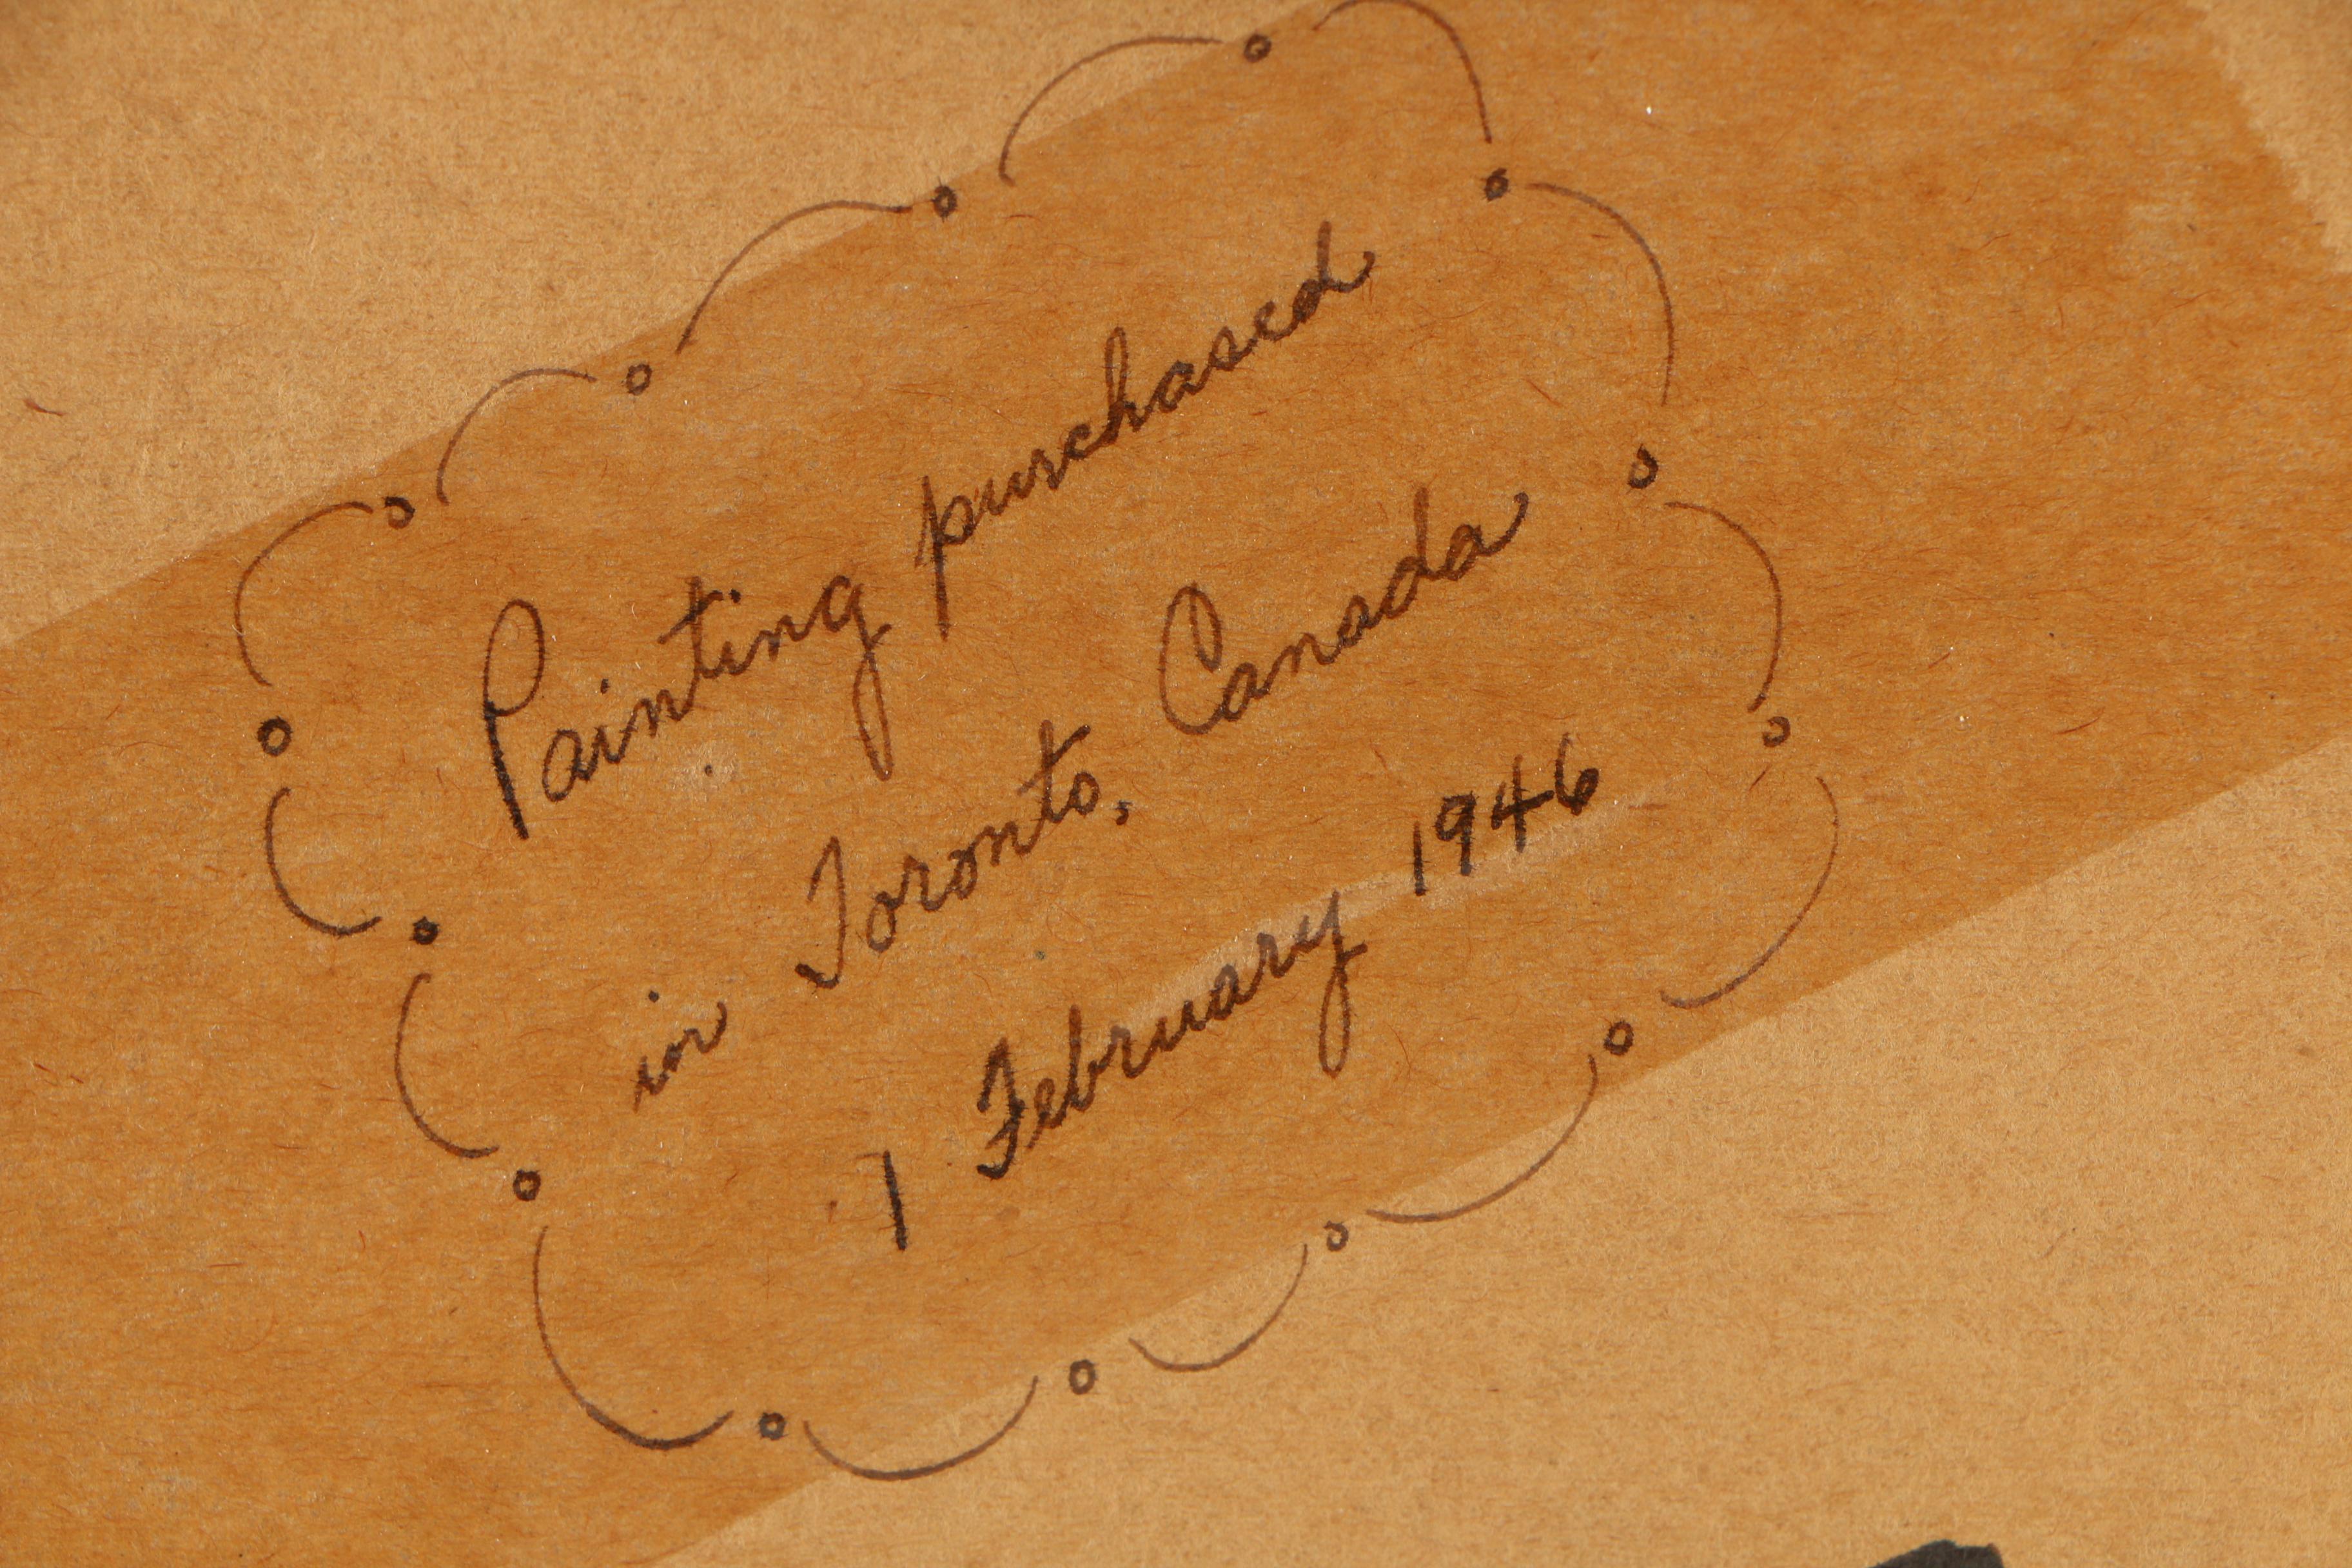 Painting purchased
in Toronto, Canada
1 February 1946